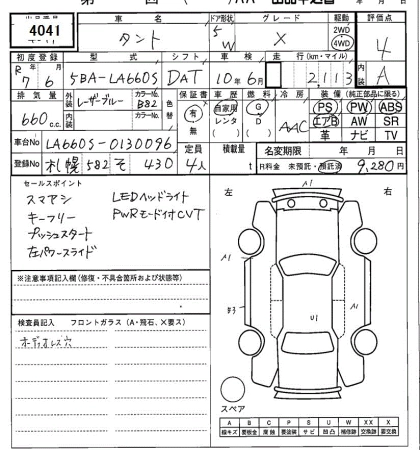 4041
車名 ドア形状 グレード 駆動 評価点
タント 5 W X 2WD 4WD 4
初度登録 型式 シフト 車検 走行(km・マイル) 内装
R 7年 6月 5BA-LA660S DAT 10年 6月 2,113 A
排気量 外装 カラーNo. 色替 保証書 車歴 燃料 冷房 装備 (純正部品に限る)
660 c.c. レーザーブルー B82 有 自家用 G AAC PS PW ABS
内装 カラーNo. 無 レンタ D エアB AW SR
革 ナビ TV
車台No LA660S-0130096 定員 積載量 名変期限 年 月 日
登録No 札幌 582 そ 430 4人 t R料金 未預託・預託済 9,280円
セールスポイント
スマアシ LEDヘッドライト
キーフリー PWRモード付CVT
プッシュスタート
左パワースライド
左 右
A1
A1
B3
U1
A1
※注意事項記入欄(修復・不具合箇所および状態等)
検査員記入 フロントガラス(A・飛石、X要ス)
オーディオレス穴
スペア
A B C P S U W X XX
線キズ 要板金 腐蝕 要塗装 サビ 凹凸 補修跡 交換跡 要交換